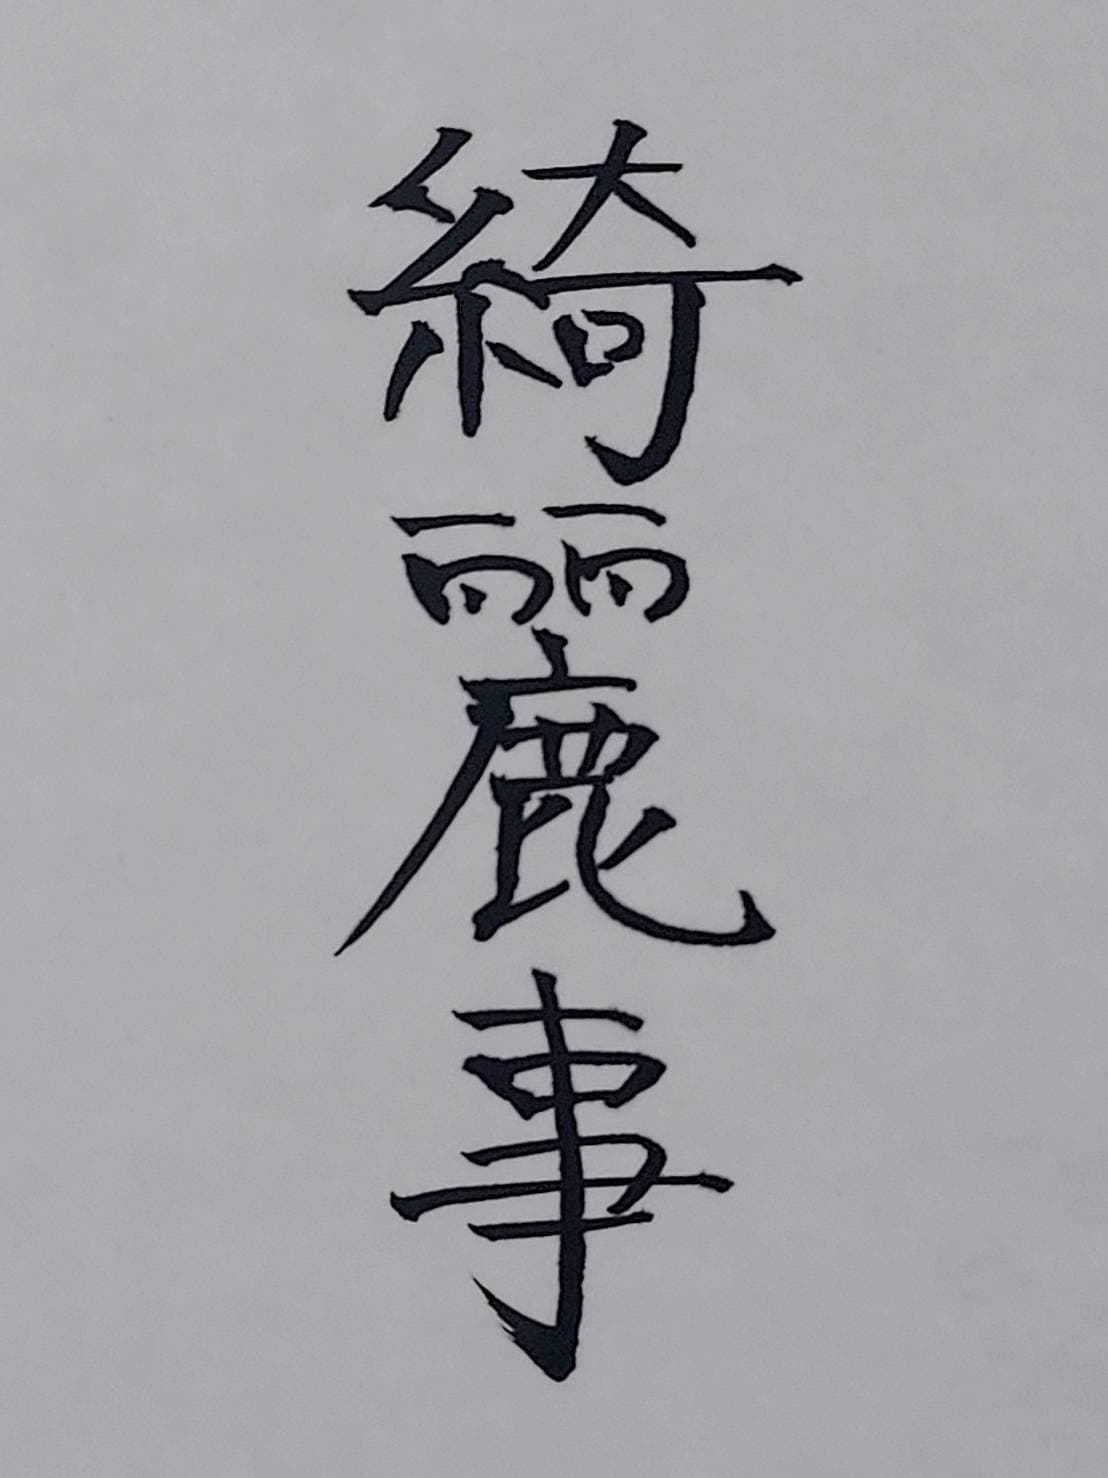 綺麗事